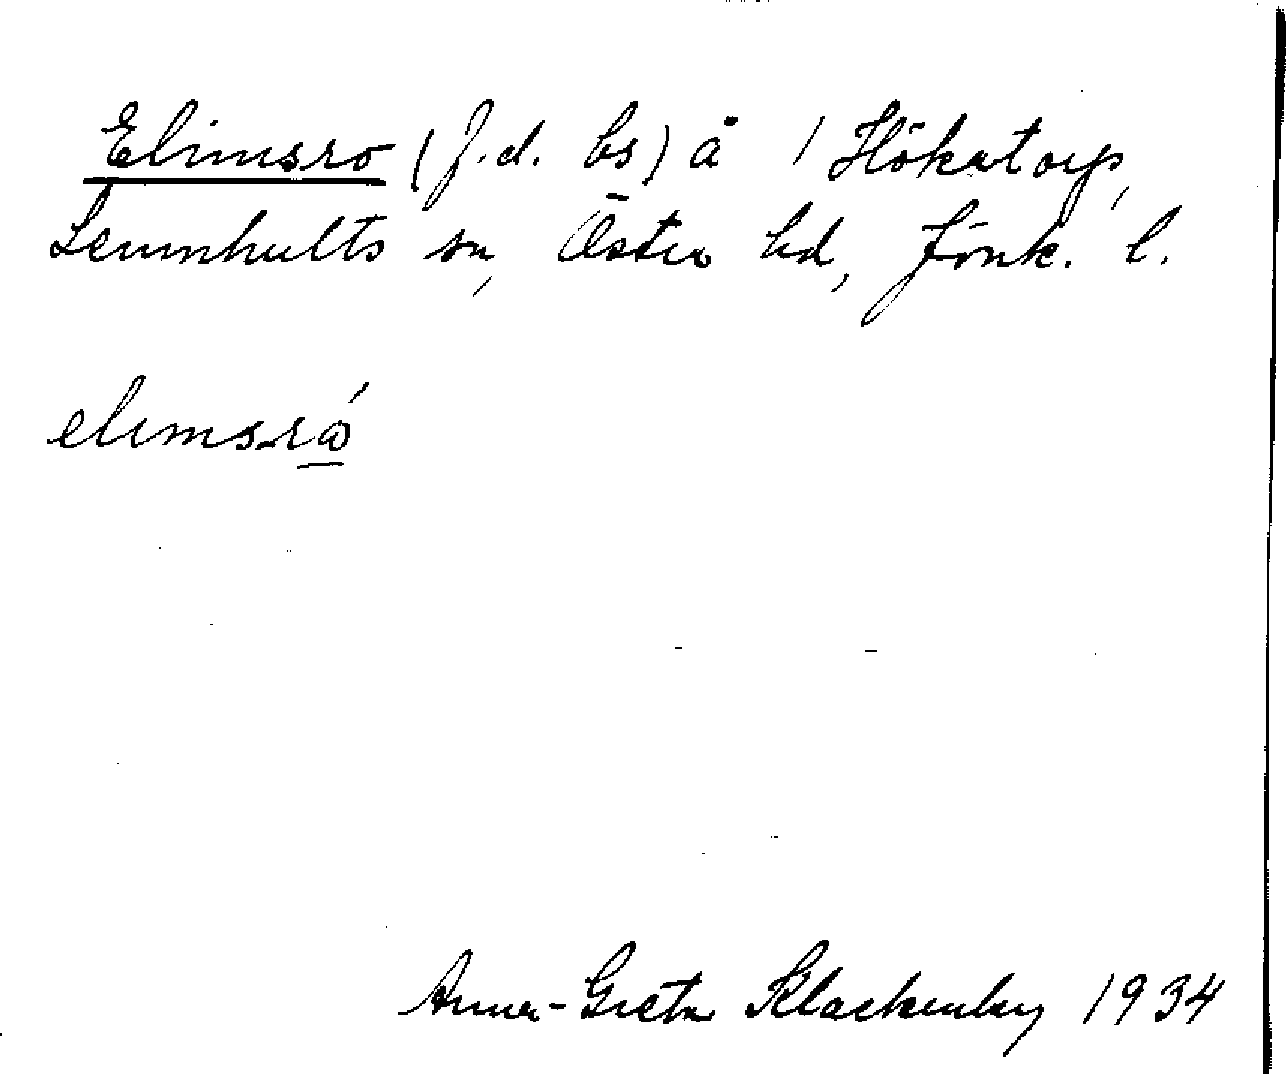 Elimsro (f.d. bs) å 1 Hökatorp,
Lemnhults sn, Östra hd, Jönk. l.
elimsró
Anna-Greta Klackenberg 1934